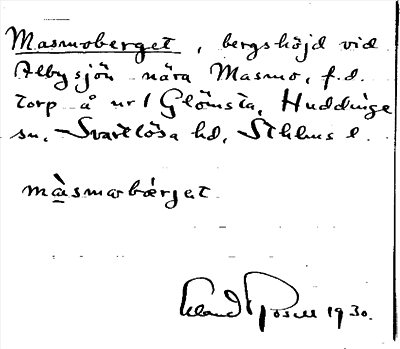 Masmoberget, bergshöjd vid
Albysjön nära Masmo, f.d.
torp å nr 1 Glömsta, Huddinge
sn, Svartlösa hd, Sthlms l.
màsmarbærjat
Erland Rosell 1930.